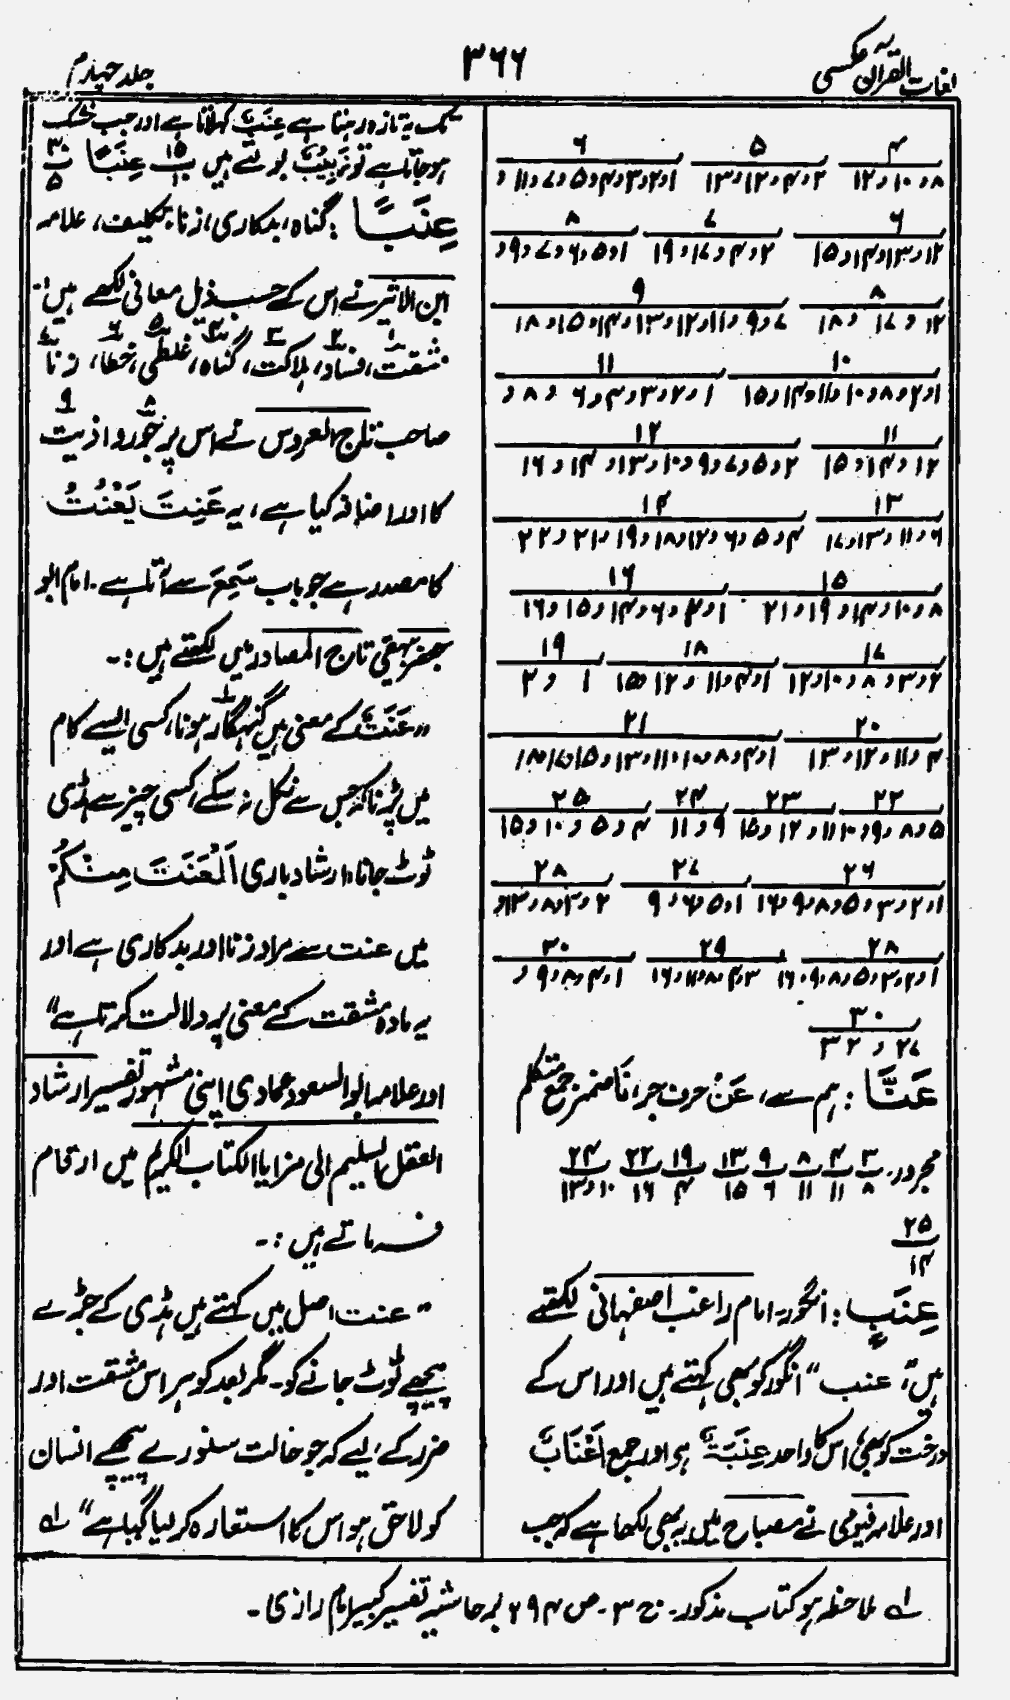 لغات القرآن عکسی
۳۶۶
جلد چہارم
۴ ۵ ۶
۸، ۱۰، ۱۲ ۲، ۴، ۱۲، ۱۳ ۱، ۲، ۳، ۴، ۵، ۷، ۱۱،
۶ ۷ ۸
۱۲، ۱۳، ۱۴، ۱۵ ۲، ۴، ۱۷، ۱۹ ۱، ۵، ۶، ۷، ۹،
۸ ۹
۱۲، ۱۷، ۱۸ ۷، ۹، ۱۱، ۱۲، ۱۳، ۱۴، ۱۵، ۱۸
۱۰ ۱۱
۱، ۲، ۸، ۱۰، ۱۱، ۱۴، ۱۵ ۱، ۲، ۳، ۴، ۶، ۸،
۱۱ ۱۲
۱۲، ۱۴، ۱۵ ۲، ۵، ۷، ۹، ۱۰، ۱۳، ۱۴، ۱۶
۱۳ ۱۴
۶، ۱۱، ۱۳، ۱۷ ۴، ۵، ۶، ۱۲، ۱۸، ۱۹، ۲۱، ۲۲
۱۵ ۱۶
۸، ۱۰، ۱۴، ۱۹، ۲۱ ۱، ۴، ۶، ۱۴، ۱۵، ۱۶
۱۷ ۱۸ ۱۹
۲، ۳، ۸، ۱۰، ۱۲ ۱، ۴، ۱۱، ۱۲، ۱۵ ۱، ۲
۲۰ ۲۱
۴، ۱۱، ۱۲، ۱۳ ۱، ۴، ۸، ۱۰، ۱۱، ۱۳، ۱۵، ۱۷، ۱۸
۲۲ ۲۳ ۲۴ ۲۵
۵، ۸، ۹، ۱۰ ۱۱، ۱۲، ۱۵ ۹، ۱۱ ۴، ۵، ۱۰، ۱۵
۲۶ ۲۷ ۲۸
۱، ۲، ۳، ۵، ۸، ۹، ۱۶ ۱، ۵، ۶، ۹ ۲، ۳، ۸، ۱۳،
۲۸ ۲۹ ۳۰
۱، ۲، ۳، ۵، ۸، ۹، ۱۶ ۳، ۴، ۸، ۱۱، ۱۶ ۱، ۴، ۸، ۹،
۳۰
۲۷، ۳۲
عَنَّا : ہم سے، عَنْ حرف جر، نَا ضمیر جمع متکلم
مجرور۔ ۳/۸ ۴/۱۱ ۸/۱۱ ۹/۶ ۱۳/۱۵ ۱۹/۴ ۲۲/۱۶ ۲۴/۱۰، ۱۳
۲۵/۱۴
عِنَبٍ : انگور۔ امام راغب اصفہانی لکھتے
ہیں : ”عنب“ انگور کو بھی کہتے ہیں اور اس کے
درخت کو بھی، اس کا واحد عِنَبَةٌ ہے اور جمع اَعْنَابٌ
اور علامہ فیومی نے مصباح میں یہ بھی لکھا ہے کہ جب
تک یہ تازہ رہتا ہے عِنَبٌ کہلاتا ہے اور جب خشک
ہو جاتا ہے تو زَبِيْبٌ بولتے ہیں ب ۱۵/۱ عِنَبًا ب ۳۰/۵
عِنَبًا : گناہ، بدکاری، زنا، تکلیف، علامہ
ابن الاثیر نے اس کے حسب ذیل معانی لکھے ہیں :۔
۱ مشقت، ۲ فساد، ۳ ہلاکت، ۴ گناہ، ۵ غلطی، ۶ خطا، ۷ زنا
صاحب تاج العروس نے اس پر ۸ جَور و ۹ اذیت
کا اور اضافہ کیا ہے، یہ عَنِتَ يَعْنَتُ
کا مصدر ہے جو باب سَمِعَ سے آتا ہے۔ امام ابو
جعفر بیہقی تاج المصادر میں لکھتے ہیں :۔
”عَنَتٌ کے معنی ہیں گنہگار ہونا، کسی ایسے کام
میں پڑنا کہ جس سے نکل نہ سکے، کسی چیز سے ہڈی
ٹوٹ جانا، ارشاد باری اَلْعَنَتَ مِنْكُمْ
میں عنت سے مراد زنا اور بدکاری ہے اور
یہ مادہ مشقت کے معنی پر دلالت کرتا ہے“
اور علامہ ابو السعود عمادی اپنی مشہور تفسیر ارشاد
العقل السلیم الی مزایا الکتاب الکریم میں ارقام
فرماتے ہیں :۔
”عنت اصل میں کہتے ہیں ہڈی کے جڑے
پیچھے ٹوٹ جانے کو۔ مگر بعد کو ہر اس مشقت اور
ضرر کے لیے کہ جو حالت سنورے پیچھے انسان
کو لاحق ہو اس کا استعارہ کر لیا گیا ہے“ لے
لے ملاحظہ ہو کتاب مذکور۔ ج ۳۔ ص ۲۹۴ بر حاشیہ تفسیر کبیر امام رازی۔